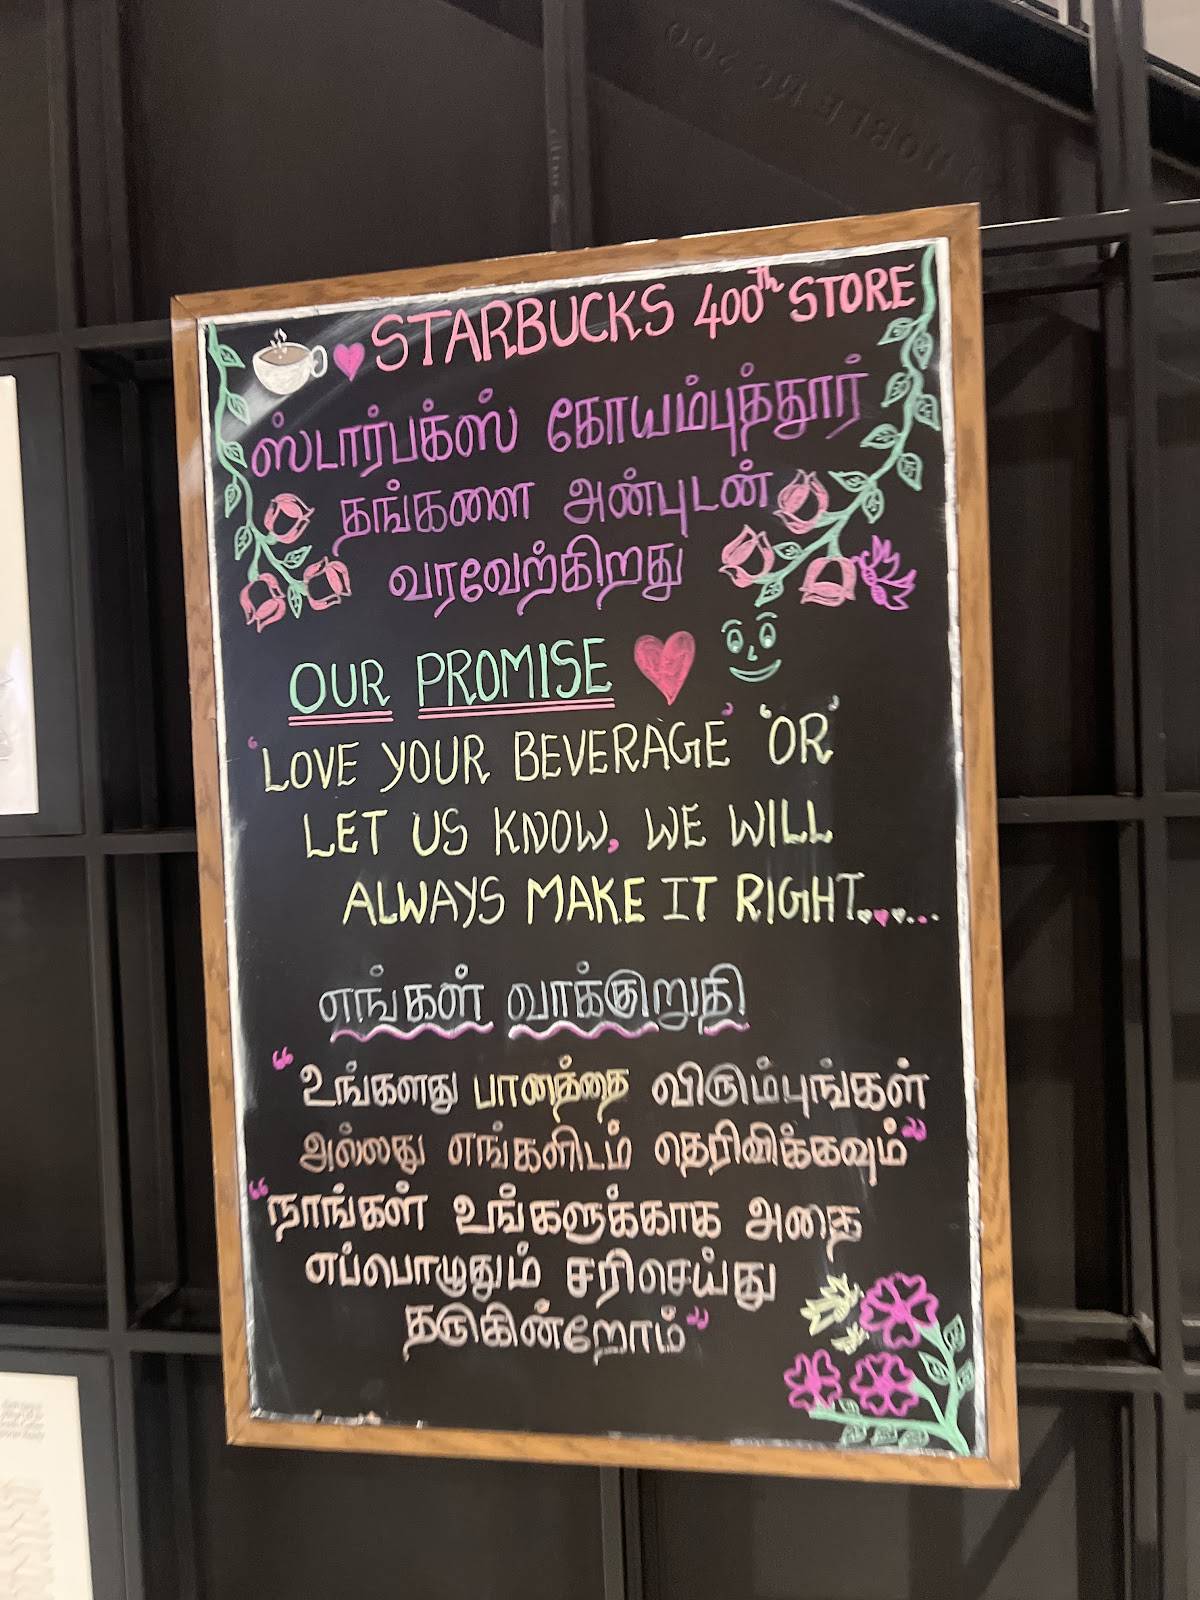 STARBUCKS 400th STORE
ஸ்டார்பக்ஸ் கோயம்புத்தூர்
தங்களை அன்புடன்
வரவேற்கிறது
OUR PROMISE
'LOVE YOUR BEVERAGE' 'OR'
LET US KNOW, WE WILL
ALWAYS MAKE IT RIGHT.......
எங்கள் வாக்குறுதி
"உங்களது பானத்தை விரும்புங்கள்
அல்லது எங்களிடம் தெரிவிக்கவும்"
"நாங்கள் உங்களுக்காக அதை
எப்பொழுதும் சரிசெய்து
தருகின்றோம்"